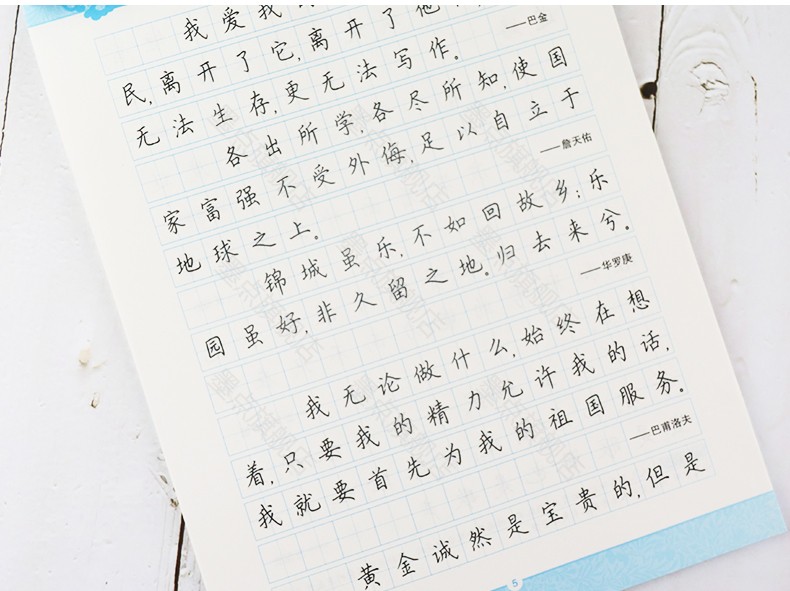 我爱我的
民,离开了它,离开了他
——巴金
无法生存,更无法写作。
各出所学,各尽所知,使国
——詹天佑
家富强不受外侮,足以自立于
地球之上。
锦城虽乐,不如回故乡;乐
——华罗庚
园虽好,非久留之地。归去来兮。
我无论做什么,始终在想
着,只要我的精力允许我的话,
——巴甫洛夫
我就要首先为我的祖国服务。
黄金诚然是宝贵的,但是
5